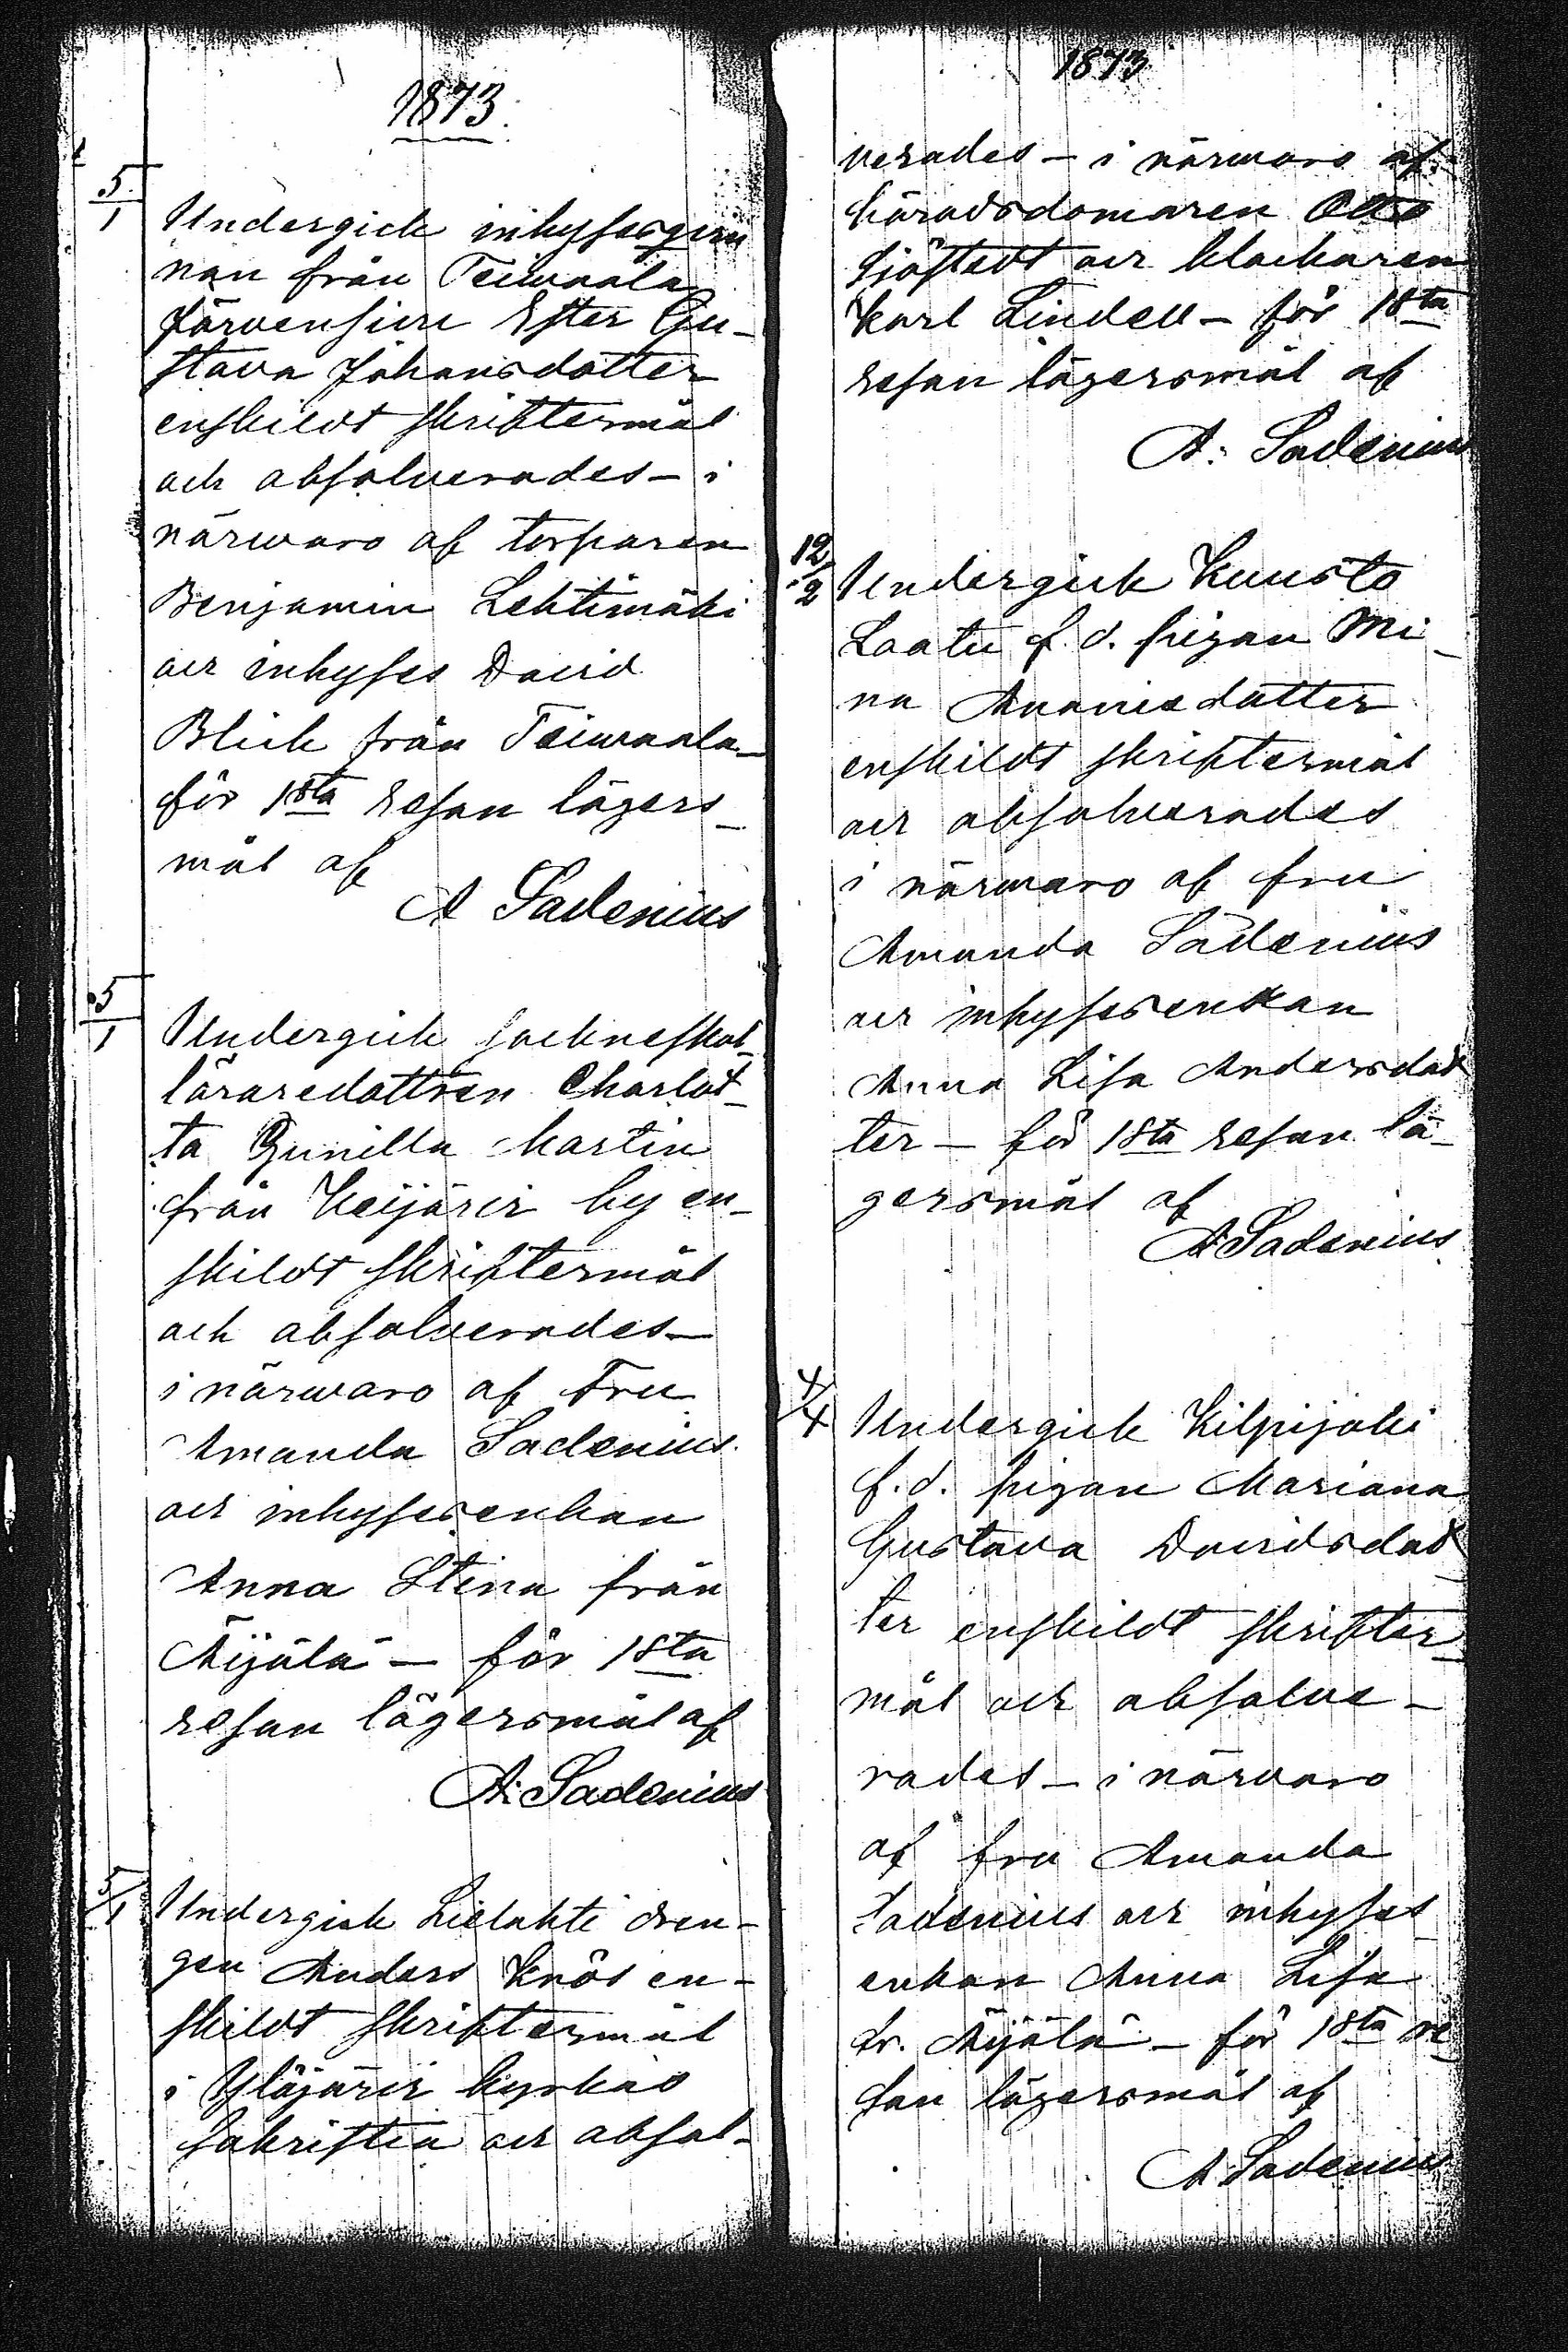 1873.
5/1
Undergick inhysesqvin
nan från Teiwaala
Järvensivu Ester Gu-
stava Johansdotter
enskildt skriftermål
och absolverades - i
närwaro af torparen
Benjamin Lehtimäki
och inhyses David
Blick från Teiwaala -
för 1sta resan lägers-
mål af
A Sadenius
5/1
Undergick sockneskol-
läraredottren Charlot-
ta Gunilla Martin
från Keijärvi by en-
skildt skriftermål
och absolverades -
i närwaro af Fru
Amanda Sadenius
och inhysesenkan
Anna Stina från
Äijälä - för 1sta
resan lägersmål af
A. Sadenius
5/1
Undergick Lielahti dren-
gen Anders Knös en-
skildt skriftermål
i Ylöjärvi kyrkas
sakristia och absol-
1873
verades - i närwaro af
häradsdomaren Otto
Sjöstedt och klockaren
Karl Lindell - för 1sta
resan lägersmål af
A. Sadenius
12/2
Undergick Kuusto
Laatu f. d. pigan Mi-
na Ananiedotter
enskildt skriftermål
och absolverades
i närwaro af fru
Amanda Sadenius
och inhysesenkan
Anna Lisa Andersdot
ter - för 1sta resan lä-
gersmål af
A Sadenius
4/4
Undergick Kilpijoki
f. d. pigan Mariana
Gustava Davidsdot
ter enskildt skrifter-
mål och absolve-
rades - i närvaro
af fru Amanda
Sadenius och inhyses
enkan Anna Lisa
fr. Äijälä - för 1sta re
san lägersmål af
A Sadenius